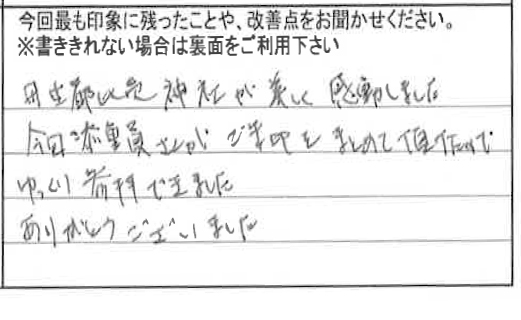 今回最も印象に残ったことや、改善点をお聞かせください。
※書ききれない場合は裏面をご利用下さい
丹生都比売神社が美しく感動しました
今回添乗員さんがご朱印をまとめて
ゆっくり参拝できました
ありがとうございました